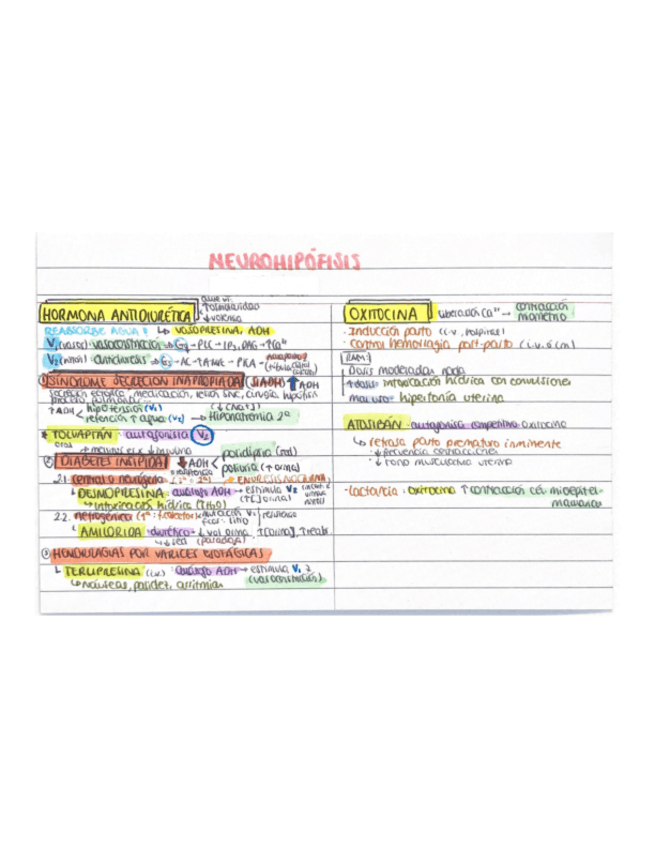 NEUROHIPÓFISIS
HORMONA ANTIDIURÉTICA
↑osmolaridad
↓volemia
REABSORBE AGUA! ↳ VASOPRESINA, ADH
V₁ (vasos) vasoconstricción → Gq → PLC → IP₃, DAG → ↑Ca²⁺
V₂ (riñón) antidiuresis → Gs → AC → ↑AMPc → PKA →
① SÍNDROME SECRECIÓN INAPROPIADA (SIADH) ↑ADH
secreción ectópica, medicación, lesión SNC, cirugía hipófisis
proceso pulmonar...
↑ADH < hipotensión (V₁) (↓[Na+])
retención ↑ agua (V₂) → Hiponatremia 2ª
* TOLVAPTÁN: antagonista V₂
oral
② DIABETES INSÍPIDA ↓ADH < polidipsia (sed)
poliuria (↑ orina)
2.1. central o neurógena ENURESIS NOCTURNA
↳ DESMOPRESINA: análogo ADH → estimula V₂
↳ intoxicación hídrica (↑H₂O) (↑[ ]orina)
2.2. nefrogénica
↳ AMILORIDA: diurético → ↓ vol orina, ↑[orina], ↑reabs
↓sed (paradoja)
③ HEMORRAGIAS POR VARICES ESOFÁGICAS
↳ TERLIPRESINA (i.v.) análogo ADH → estimula V₁
↳ náuseas, palidez, arritmias (vasoconstricción)
OXITOCINA liberación Ca²⁺ → contracción
miometrio
· Inducción parto (i.v., hospital)
· Control hemorragia post-parto (i.v. o i.m)
RAM:
Dosis moderadas nada
↑dosis: intoxicación hídrica con convulsiones
mal uso: hipertonía uterina
ATOSIBÁN: antagonista competitivo oxitocina
↳ retrasa parto prematuro inminente
· ↓ frecuencia contracciones
· ↓ tono musculatura uterina
· Lactancia: oxitocina ↑ contracción cél mioepitel-
mamarias